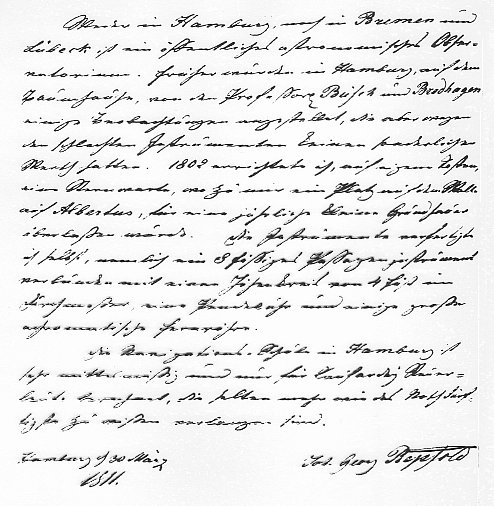 Weder in Hamburg, noch in Bremen und
Lübeck ist ein öffentliches astronomisches Obser-
vatorium. Früher wurden in Hamburg, auf dem
Baumhause, von den Prof. Büsch und Brodhagen
einige Beobachtungen angestellt, die aber wegen
der schlechten Instrumente keinen sonderlichen
Werth hatten. 1802 errichtete ich, auf eigene Kosten,
eine Sternwarte, wo zu mir ein Platz auf dem Wall
auf Albertus, für eine jährliche kleine Grundhauer
überlassen wurde. Die Instrumente verfertigte
ich selbst, nemlich ein 8 füssiges Passagen instrument
verbunden mit einen Höhenkreis von 4 Fuß im
Durchmesser, eine Pendeluhr und einige große
achromatische Fernröhre.
Die Navigations-Schule in Hamburg ist
sehr mittelmässig und nur für Steuer-
leute berechnet, die selten mehr wie das Nothdürf-
tigste zu wissen verlangen sind.
Hamburg d 30 März
1811.
Joh. Georg Repsold